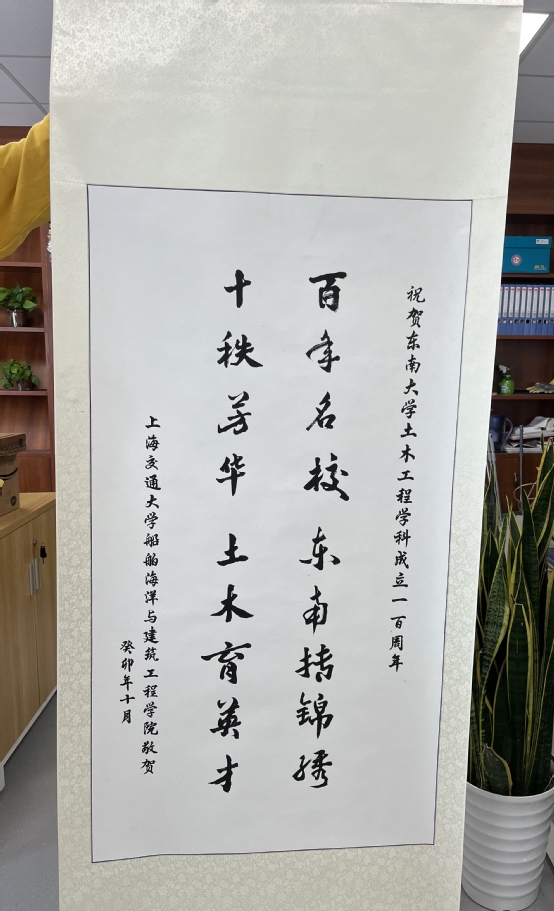 祝贺东南大学土木工程学科成立一百周年
百年名校东南持锦绣
十秩芳华土木育英才
上海交通大学船舶海洋与建筑工程学院敬贺
癸卯年十月